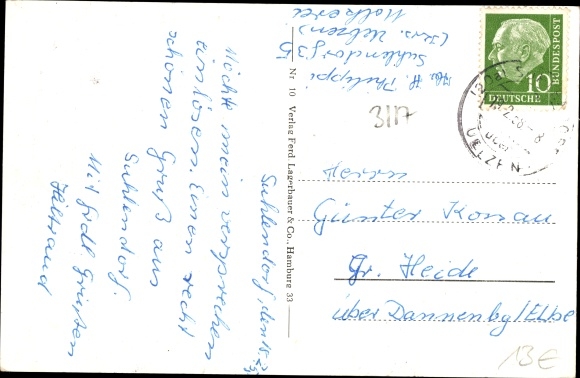 Suhlendorf, den 15.2.
Möchte mein versprechen
einlösen. Einen recht
schönen Gruß aus
Suhlendorf.
Mit frdl. Grüßen
Hiltraud
H. Philippi
Suhlendorf 35
(Krs. Uelzen)
Molkerei
Nr 10 Verlag Ferd. Lagerbauer & Co., Hamburg 33
DEUTSCHE
BUNDESPOST
10
UELZEN
3117
Herrn
Günter Konau
Gr. Heide
über Dannenbg/Elbe
13€